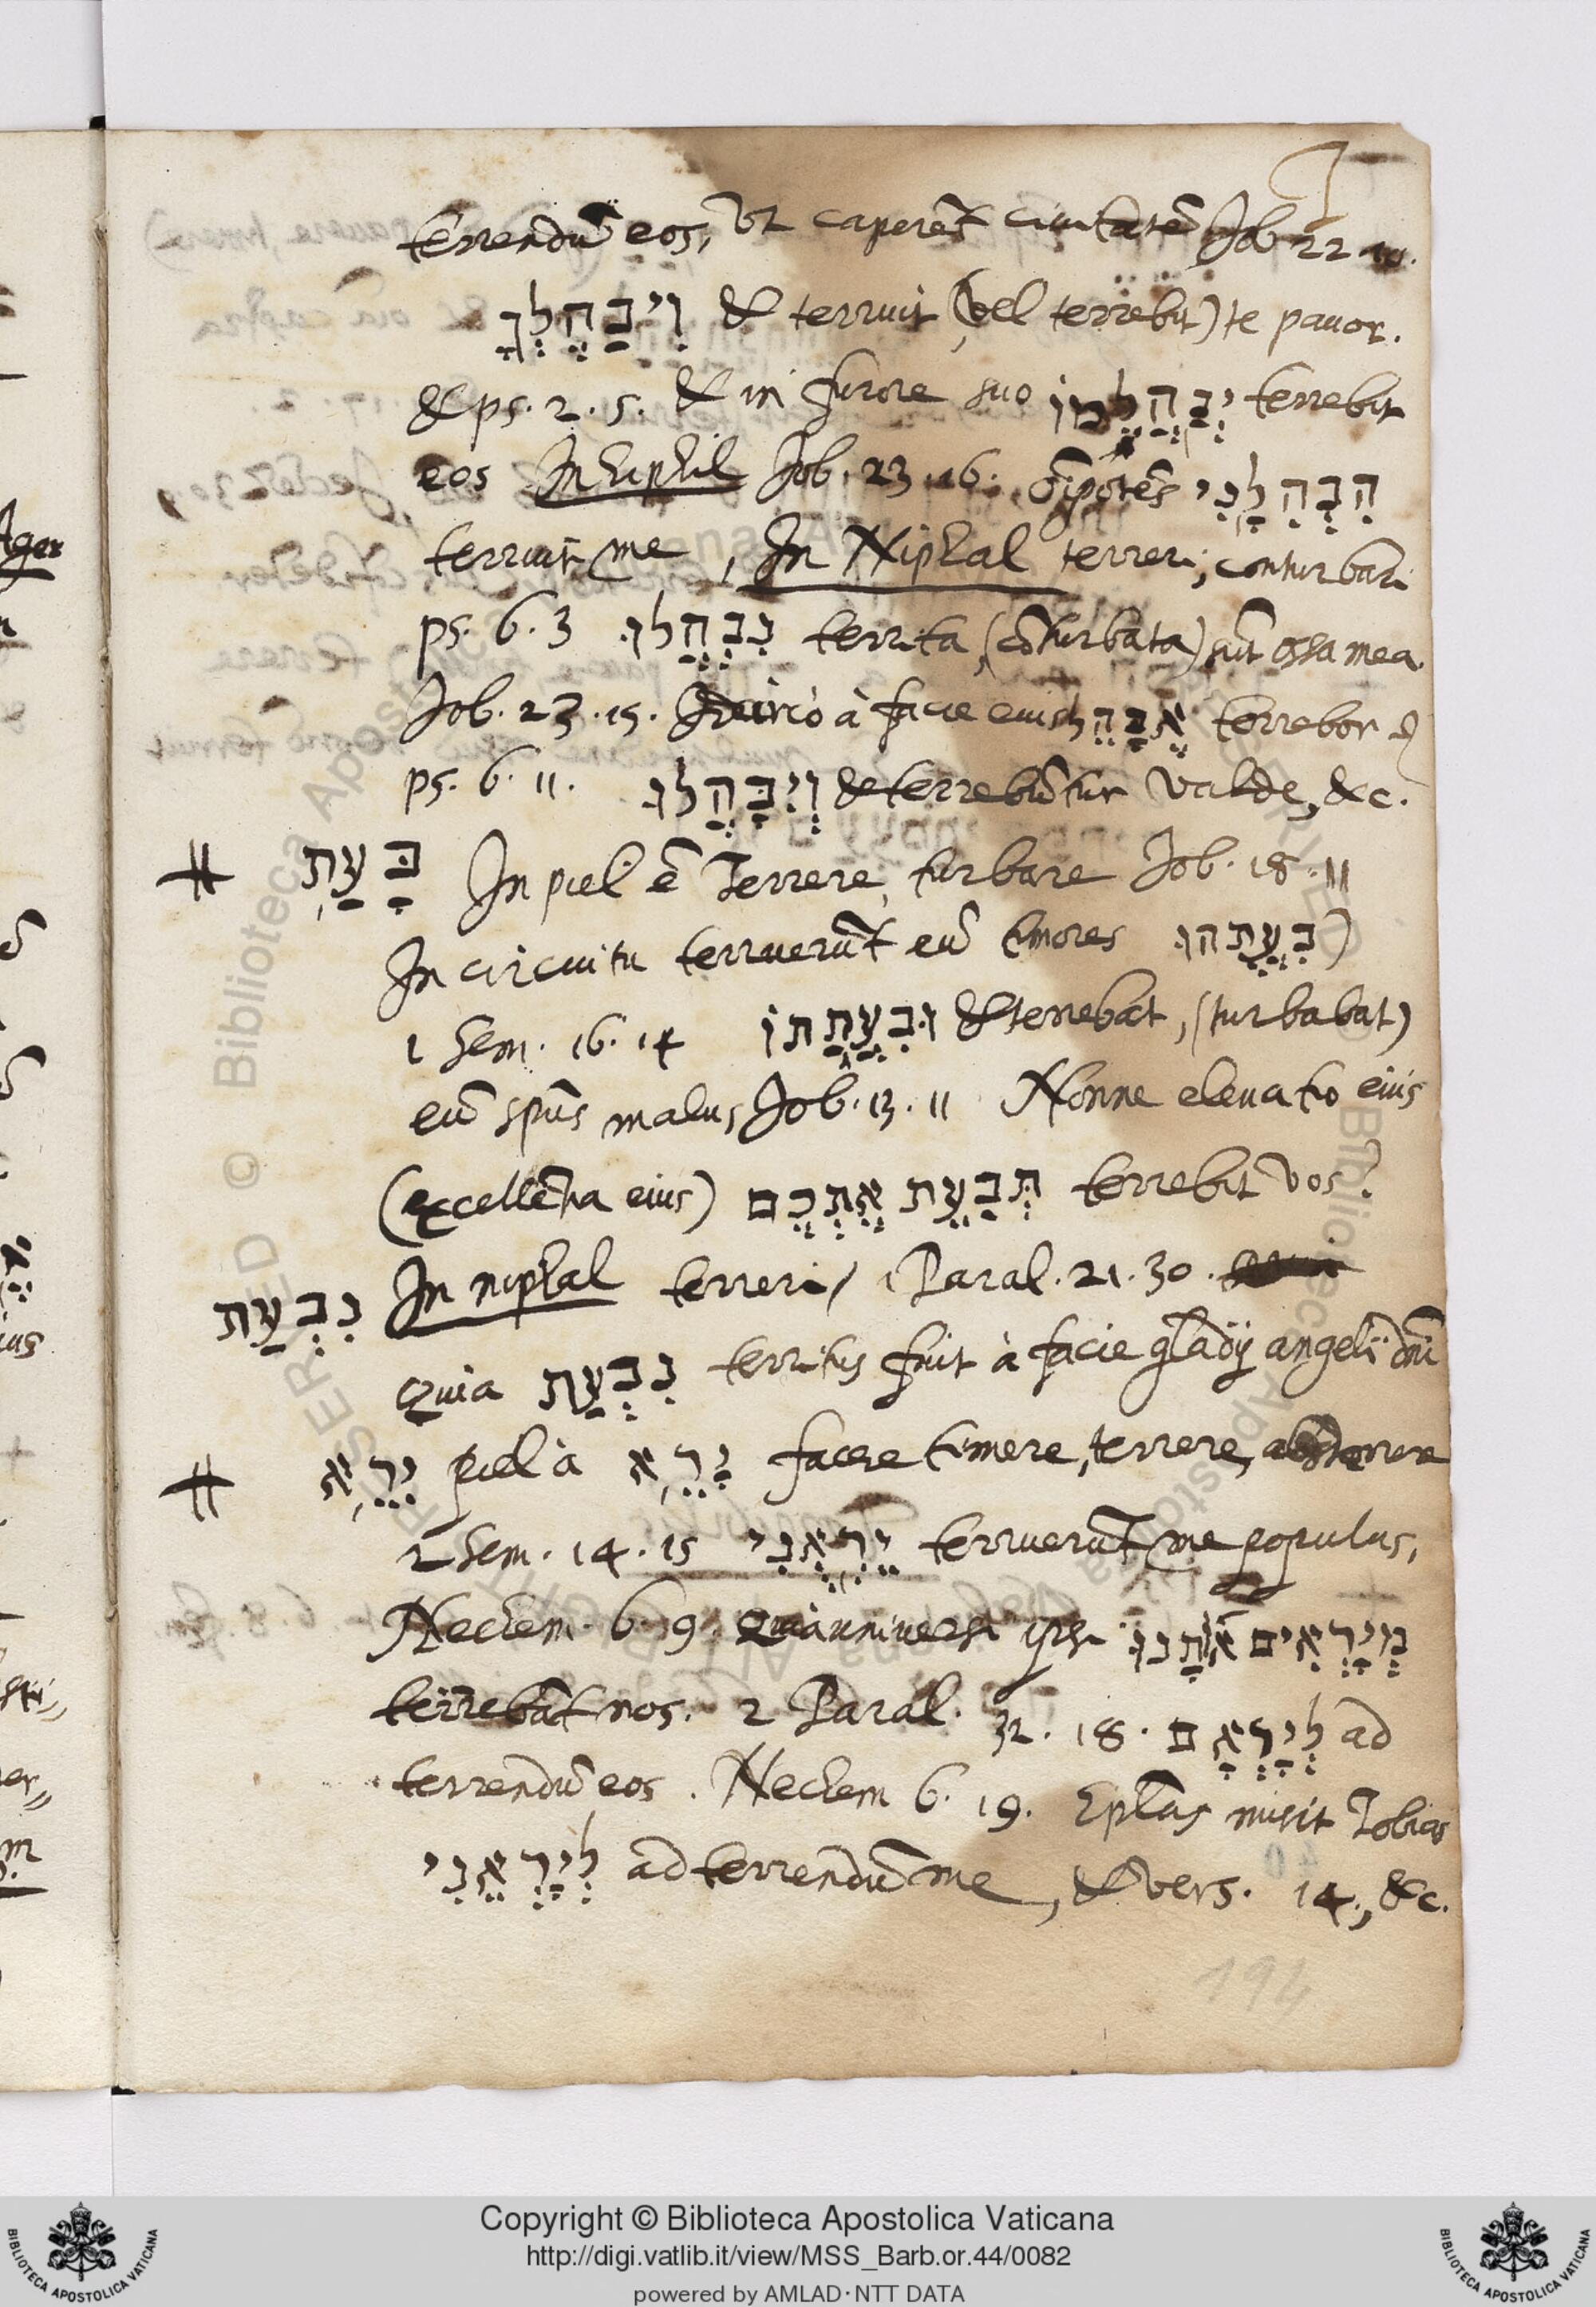 terrendũ eos, vt caperẽt ciuitatẽ Job 22 10.
וִיבַהֶלְךָ & terruit (vel terrebit) te pauor.
& ps. 2. 5. & in furore suo יְבַהֲלֵמוֹ terrebit
eos In hiphil Job. 23. 16. õipotẽs הִבְהִלָנִי
terruit me, In Niphal terreri, conturbari
ps. 6. 3 נִבְהֲלוּ territa, (cõturbata) sũt ossa mea.
Job. 23. 15. Idcirco à facie eius אֶבָּהֵל terrebor &
ps. 6. 11. וְיִבָּהֲלוּ & terrebũtur valde, &c.
בָּעַת In piel ẽ Terrere, turbare Job. 18. 11
In circuitu terruerũt eũ timores בִּעֲתֻהוּ)
1 Sem. 16. 14 וּבִעֲתַתּוֹ & terrebat, (turbabat)
eũ spũs malus, Job. 13. 11 Nonne eleuatio eius
(excellẽtia eius) תְּבַעֵת אֶתְכֶם terrebit vos?
נִבְעַת In niphal terreri, 1 Paral. 21. 30.
Quia נִבְעַת territus fuit à facie gladij angeli dñi
יִרֵא piel à יָרֵא facere timere, terrere, absterrere
2 Sem. 14. 15 יֵרְאֻנִי terruerũt me populus,
Nechem. 6. 9. Quia uniuersi ipsi מְיָרְאִים אוֹתָנוּ
terrebãt nos. 2 Paral. 32. 18. לְיָרְאָם ad
terrendũ eos. Nechem 6. 19. Eplãs misit Tobias
לְיָרְאֵנִי ad terrendũ me, & vers. 14., &c.
194
Copyright © Biblioteca Apostolica Vaticana
http://digi.vatlib.it/view/MSS_Barb.or.44/0082
powered by AMLAD·NTT DATA